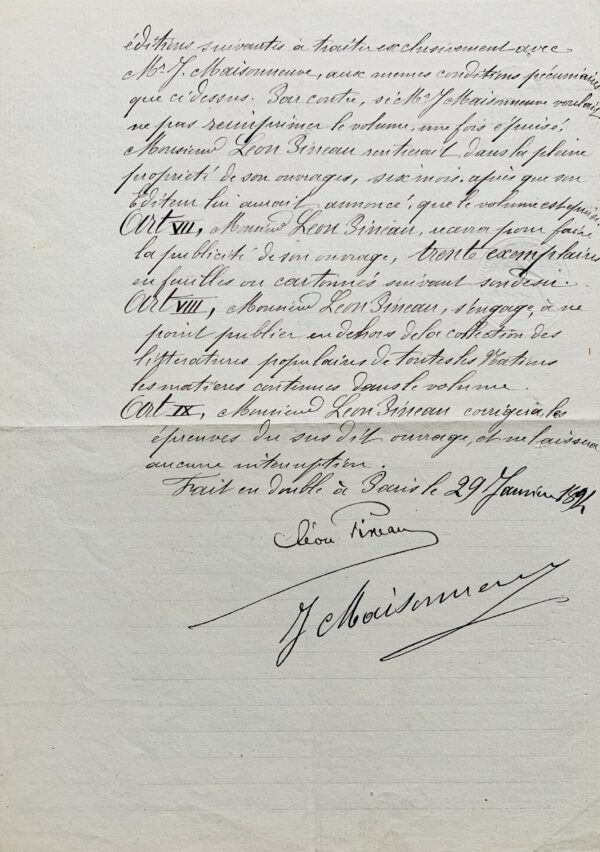 éditions suivantes à traiter exclusivement avec
Mr J. Maisonneuve, aux memes conditions pécuniaires
que ci dessus. Par contre, si Mr J Maisonneuve voulait
ne pas reimprimer le volume, une fois épuisé,
Monsieur Léon Pineau rentrerait dans la pleine
propriété de son ouvrages, six mois après que son
Editeur lui aurait annoncé, que le volume est épuisé.
Art VII, Monsieur Léon Pineau, recevra pour faire
la publicité de son ouvrage, trente exemplaires
en feuilles ou cartonnés suivant son desir.
Art VIII, Monsieur Léon Pineau, s'engage, à ne
point publier en dehors de la collection des
littératures populaires de toutes les Nations
les matieres contenues dans le volume.
Art IX, Monsieur Léon Pineau corrigera, les
épreuves du sus dit ouvrage, et ne laissera
aucune interuption.
Fait en double à Paris le 29 Janvier 1891
Léon Pineau
J Maisonneuve